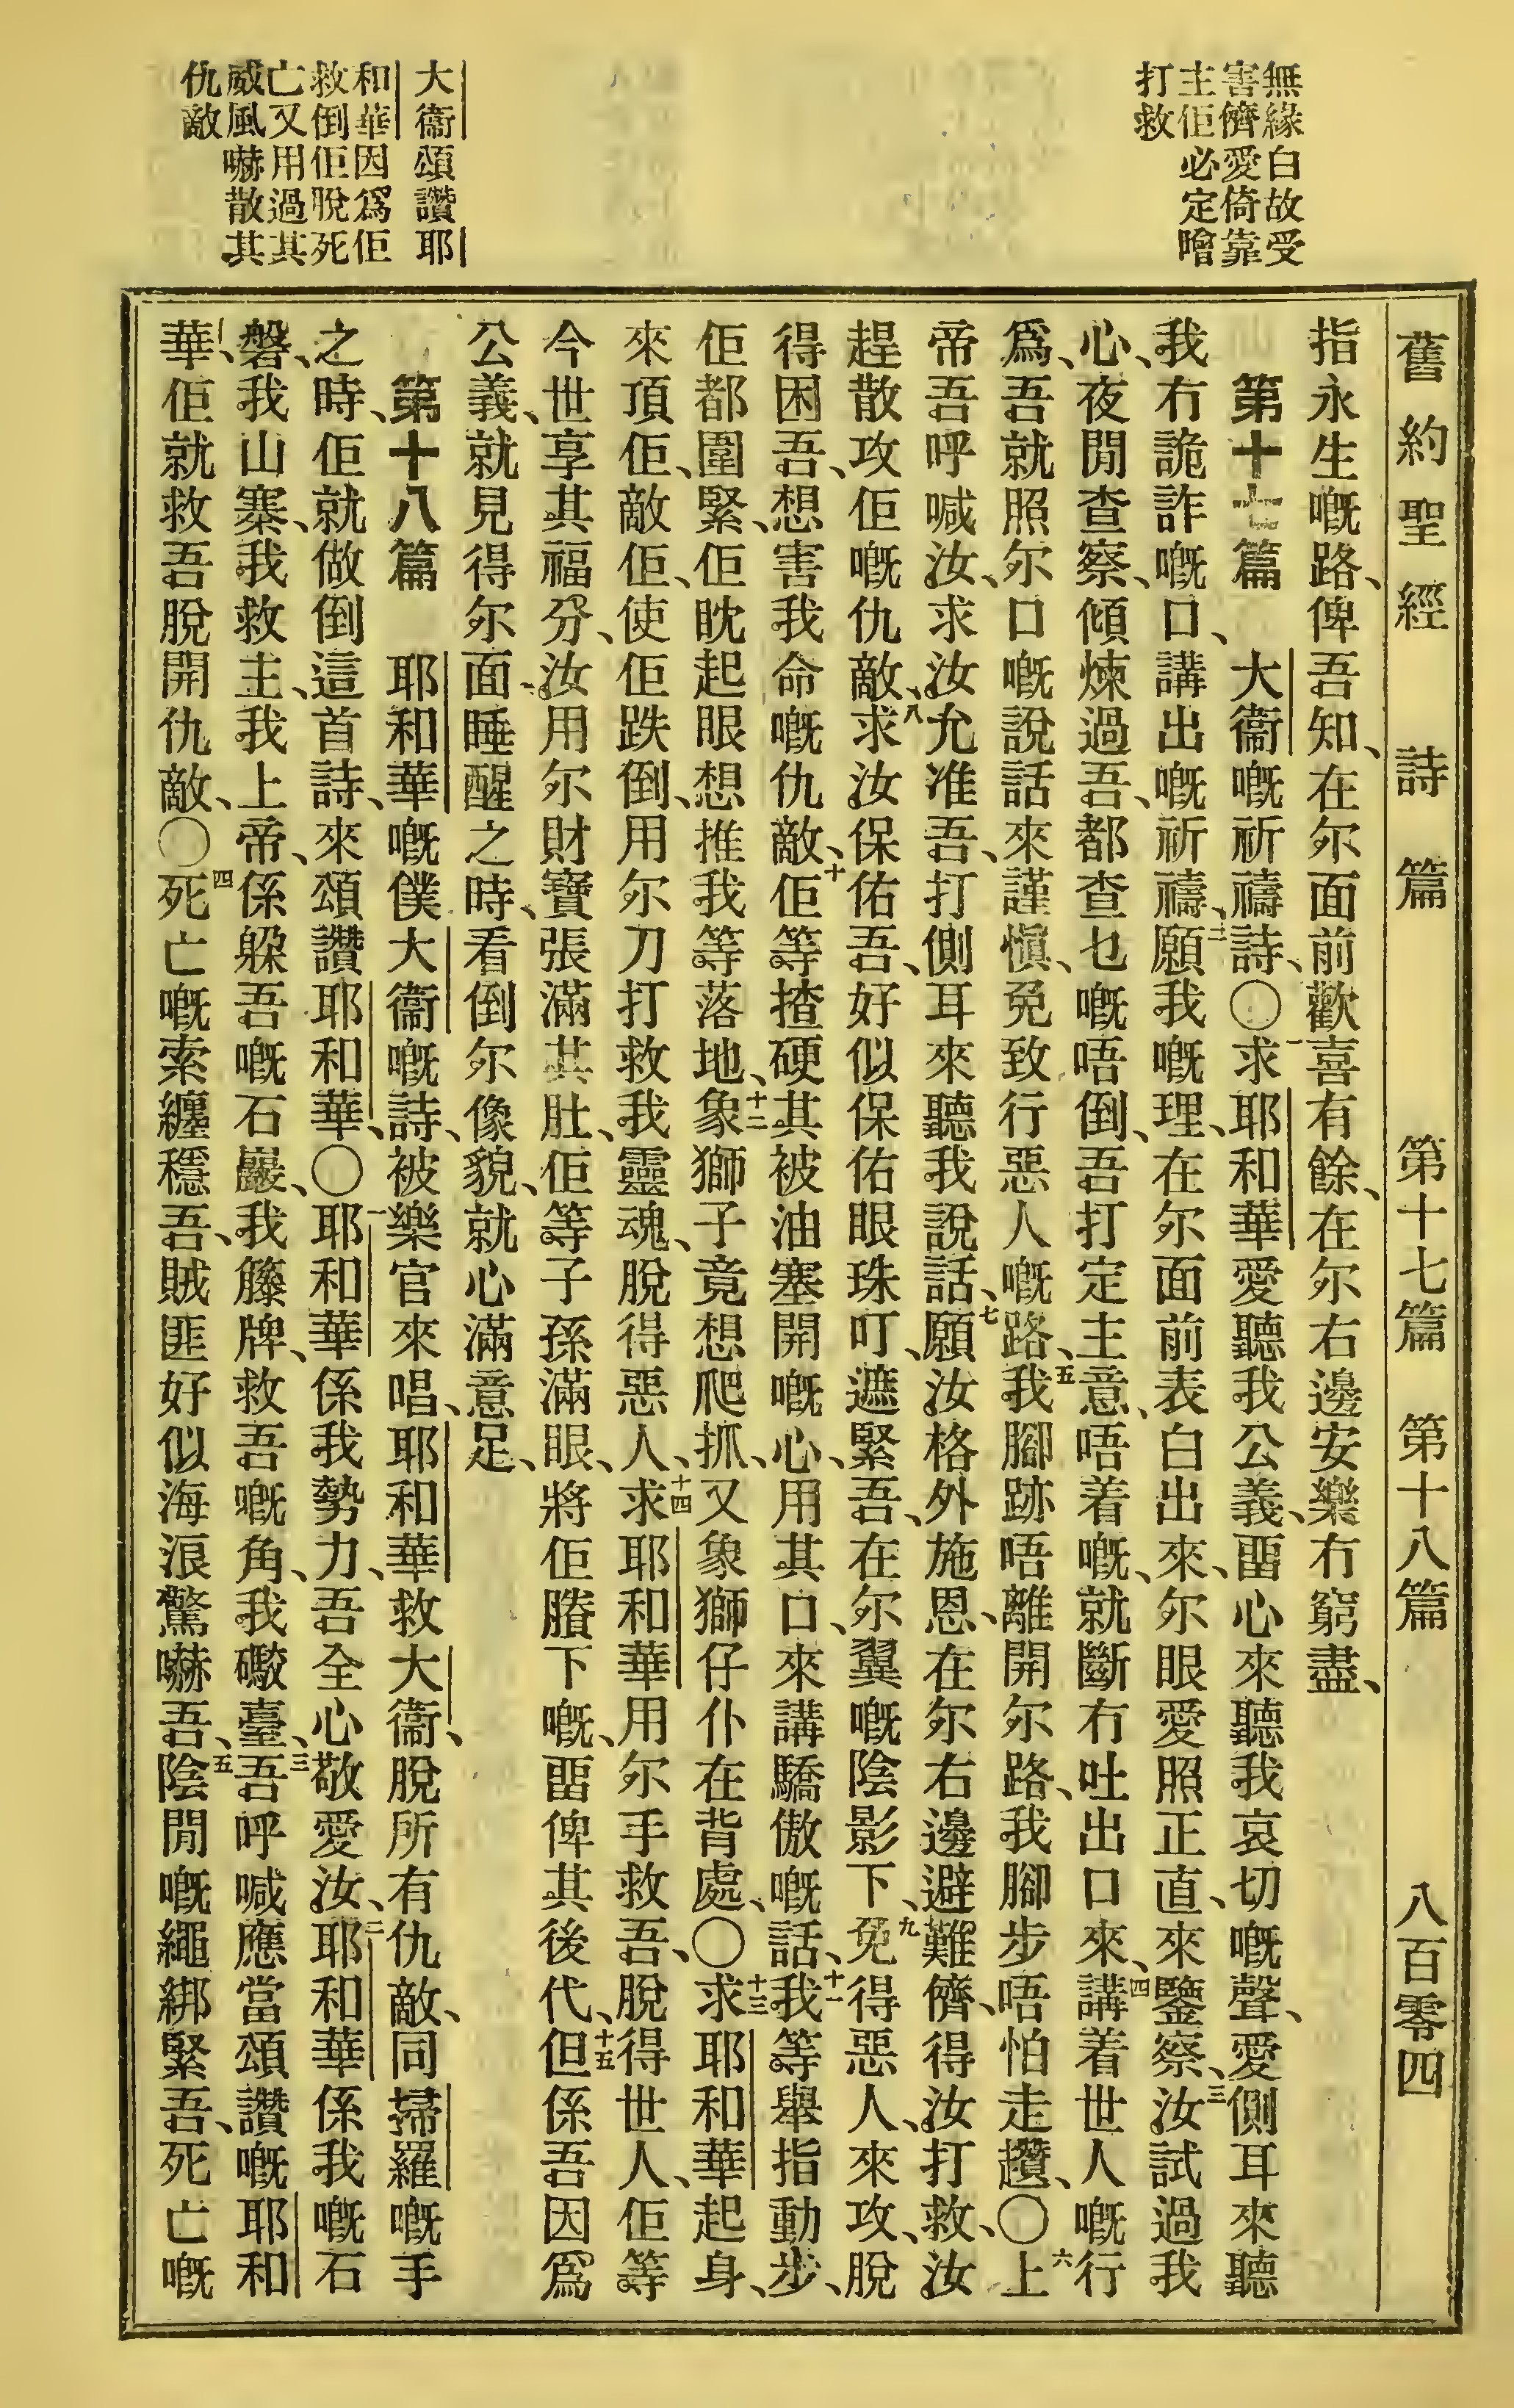 舊約聖經 詩篇 第十七篇 第十八篇 八百零四
無緣白故受
害儕愛倚靠
主佢必定噲
打救
大衞頌讚耶
和華因爲佢
救倒佢脫死
亡又用過其
威風嚇散其
仇敵
指永生嘅路、俾吾知、在尔面前歡喜有餘、在尔右邊安樂冇窮盡、
第十七篇 大衞嘅祈禱詩、〇一求耶和華愛聽我公義、畱心來聽我哀切嘅聲、愛側耳來聽
我冇詭詐嘅口、講出嘅祈禱、二願我嘅理、在尔面前表白出來、尔眼愛照正直、來鑒察、三汝試過我
心、夜間查察、傾煉過吾、都查乜嘅唔倒、吾打定主意、唔着嘅、就斷冇吐出口來、四講着世人嘅行
爲、吾就照尔口嘅說話來謹愼、免致行惡人嘅路、五我腳跡唔離開尔路、我腳步唔怕走趲、〇六上
帝吾呼喊汝、求汝允准吾、打側耳來聽我說話、七願汝格外施恩、在尔右邊避難儕、得汝打救、汝
趕散攻佢嘅仇敵、八求汝保佑吾、好似保佑眼珠叮、遮緊吾、在尔翼嘅陰影下、九免得惡人、來攻、脫
得困吾、想害我命嘅仇敵、十佢等揸硬其被油塞開嘅心、用其口、來講驕傲嘅話、十一我等舉指動步、
佢都圍緊、佢眈起眼想推我等落地、十二象獅子竟想爬抓、又象獅仔仆在背處、〇十三求耶和華起身、
來頂佢、敵佢、使佢跌倒、用尔刀打救我靈魂、脫得惡人、十四求耶和華用尔手救吾、脫得世人、佢等
今世享其福分、汝用尔財寶張滿其肚、佢等子孫滿眼、將佢賸下嘅、畱俾其後代、十五但係吾因爲
公義、就見得尔面、睡醒之時、看倒尔像貌、就心滿意足、
第十八篇 耶和華嘅僕大衞嘅詩、被樂官來唱、耶和華救大衞、脫所有仇敵、同掃羅嘅手
之時、佢就做倒這首詩、來頌讚耶和華、〇一耶和華係我勢力、吾全心敬愛汝、二耶和華係我嘅石
磐、我山寨、我救主、我上帝、係躲吾嘅石巖、我籐牌、救吾嘅角、我礮臺、三吾呼喊應當頌讚嘅耶和
華、佢就救吾脫開仇敵、〇四死亡嘅索纏穩吾、賊匪好似海浪驚嚇吾、五陰間嘅繩綁緊吾、死亡嘅